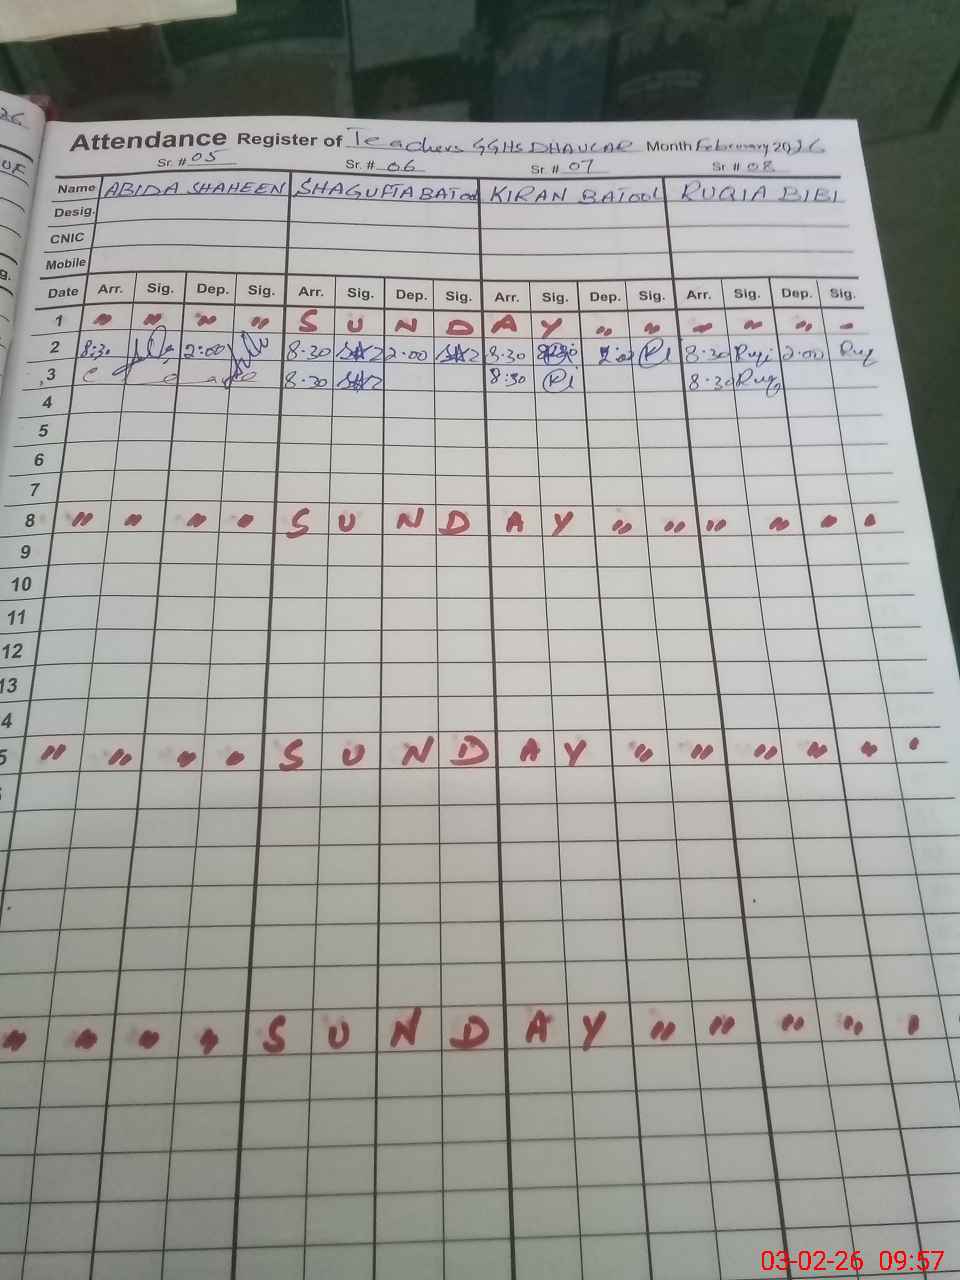 Attendance Register of Teachers GGHS DHAULAR Month February 2026
Sr. # 05 Sr. # 06 Sr. # 07 Sr # 08
Name ABIDA SHAHEEN SHAGUFTA BATOOL KIRAN BATOOL RUQIA BIBI
Desig.
CNIC
Mobile
Date Arr. Sig. Dep. Sig. Arr. Sig. Dep. Sig. Arr. Sig. Dep. Sig. Arr. Sig. Dep. Sig.
1 " " " " S U N D A Y " " " " " "
2 8:30 2:00 8.30 2.00 8.30 2:00 8.30 Ruqi 2.00 Ruq
3 8.30 8:30 8.30 Ruq
4
5
6
7
8 " " " " S U N D A Y " " " " " "
9
10
11
12
13
4
5 " " " " S U N D A Y " " " " " "
" " " " S U N D A Y " " " " "
03-02-26 09:57